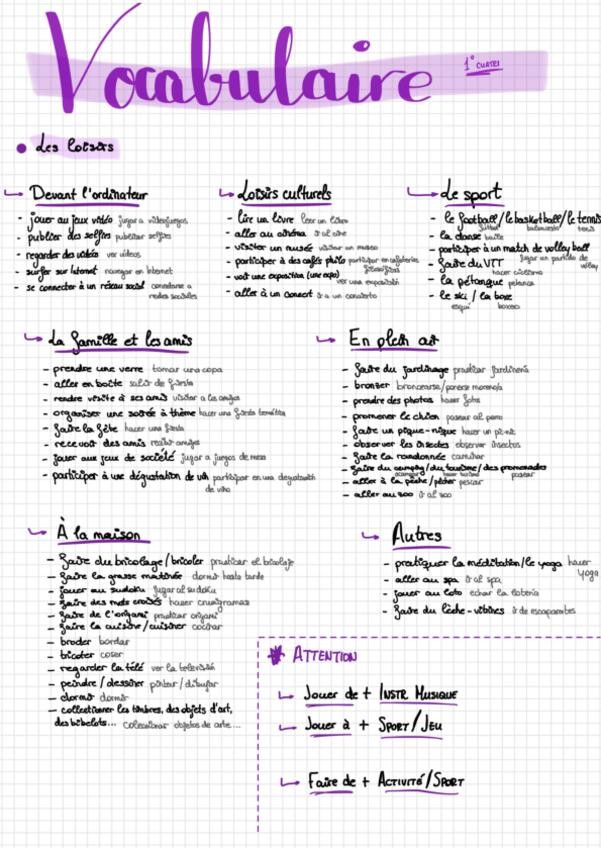 Vocabulaire 1º CUATRI
Les loisirs
Devant l'ordinateur
- jouer au jeux vidéo jugar a videojuegos
- publier des selfies publicar selfies
- regarder des vidéos ver vídeos
- surfer sur Internet navegar en Internet
- se connecter à un réseau social conectarse a
redes sociales
Loisirs culturels
- lire un livre leer un libro
- aller au cinéma ir al cine
- visiter un musée visitar un museo
- participer à des cafés philo participar en cafeterías
filosóficas
- voir une exposition (une expo)
ver una exposición
- aller à un concert ir a un concierto
Le sport
- le football/le basketball/le tennis
fútbol baloncesto tenis
- la danse baile
- participer à un match de volley ball
jugar un partido de
voley
- faire du VTT
hacer ciclismo
- la pétanque petanca
- le ski / la boxe
esquí boxeo
La famille et les amis
- prendre une verre tomar una copa
- aller en boîte salir de fiesta
- rendre visite à ses amis visitar a los amigos
- organiser une soirée à thème hacer una fiesta temática
- faire la fête hacer una fiesta
- recevoir des amis recibir amigos
- jouer aux jeux de société jugar a juegos de mesa
- participer à une dégustation de vin participar en una degustación
de vino
En plein air
- faire du jardinage practicar jardinería
- bronzer broncearse/ponerse moreno/a
- prendre des photos hacer fotos
- promener le chien pasear al perro
- faire un pique-nique hacer un picnic
- observer les insectes observar insectos
- faire la randonnée caminar
- faire du camping/du tourisme/des promenades
acampar hacer turismo pasear
- aller à la pêche/pêcher pescar
- aller au zoo ir al zoo
À la maison
- faire du bricolage/bricoler practicar el bricolaje
- faire la grasse matinée dormir hasta tarde
- jouer au sudoku jugar al sudoku
- faire des mots croisés hacer crucigramas
- faire de l'origami practicar origami
- faire la cuisine/cuisiner cocinar
- broder bordar
- tricoter coser
- regarder la télé ver la televisión
- peindre/dessiner pintar/dibujar
- dormir dormir
- collectionner les timbres, des objets d'art,
des bibelots... coleccionar objetos de arte...
Autres
- pratiquer la méditation/le yoga hacer
yoga
- aller au spa ir al spa
- jouer au loto echar la lotería
- faire du lèche-vitrines ir de escaparates
* ATTENTION
Jouer de + INSTR. MUSIQUE
Jouer à + SPORT/JEU
Faire de + ACTIVITÉ/SPORT